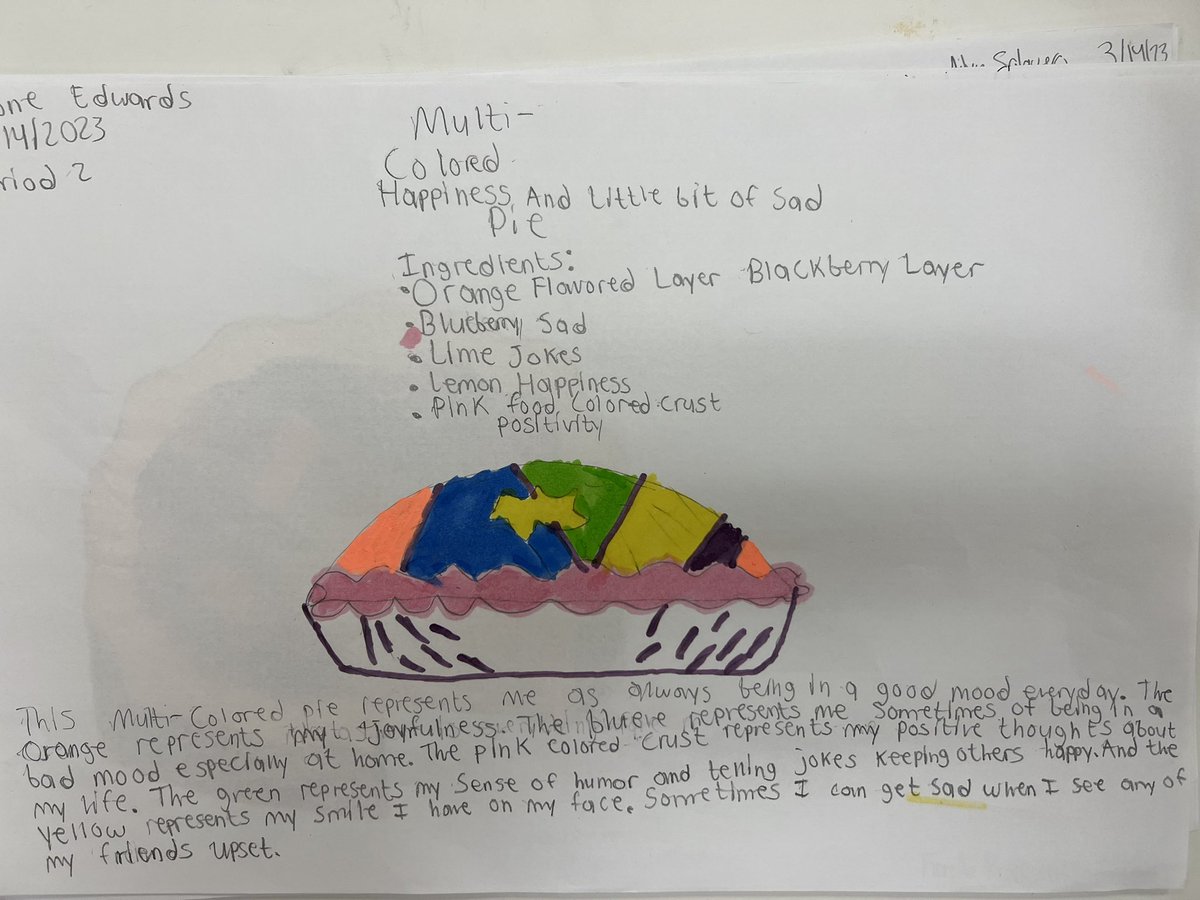 3/14/23
one Edwards
14/2023
riod 2
Multi-
Colored
Happiness And Little bit of Sad
Pie
Ingredients:
• Orange Flavored Layer Blackberry Layer
• Blueberry Sad
• Lime Jokes
• Lemon Happiness
• Pink food Colored Crust
Positivity
This Multi-Colored pie represents me as always being in a good mood everyday. The
orange represents my joyfulness. The blue represents me sometimes of being in a
bad mood especially at home. The pink colored crust represents my positive thoughts about
my life. The green represents my sense of humor and telling jokes keeping others happy. And the
yellow represents my smile I have on my face. Sometimes I can get sad when I see any of
my friends upset.